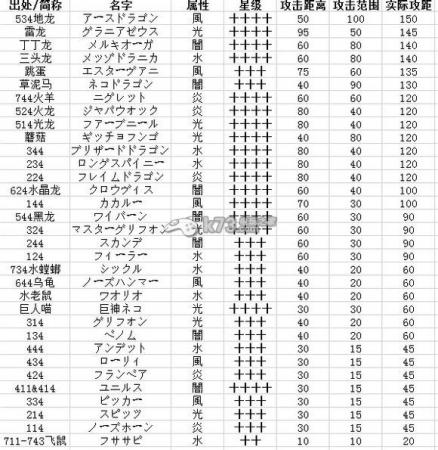 出处/简称 名字 属性 星级 攻击距离 攻击范围 实际攻距
534地龙 アースドラゴン 風 ++++ 50 100 150
雷龙 グラニアゼウス 光 ++++ 95 50 145
丁丁龙 メルキオーガ 闇 ++++ 60 80 140
三头龙 メッゾドラニカ 水 ++++ 80 60 140
跳蛋 エスターヴァニ 風 +++ 75 60 135
草泥马 ネコドラゴン 闇 +++ 40 90 130
744火羊 ニグレット 炎 ++++ 60 60 120
524火龙 ジャバウオック 炎 ++++ 80 40 120
514光龙 ファーブニール 光 ++++ 80 40 120
蘑菇 ギッチョフンゴ 光 ++++ 40 80 120
344 ブリザードドラゴン 水 ++++ 80 40 120
234 ロングスパイニー 水 ++++ 80 40 120
224 フレイムドラゴン 炎 ++++ 80 40 120
624水晶龙 クロウヴィス 闇 ++++ 60 40 100
144 カカルー 風 ++++ 70 30 100
544黑龙 ワイバーン 闇 ++++ 60 30 90
324 マスターグリフォン 光 ++++ 60 30 90
244 スカンデ 闇 +++ 60 30 90
124 フィーラー 水 +++ 60 30 90
734水螳螂 シックル 水 +++ 40 20 60
644乌龟 ノーズハンマー 風 +++ 40 20 60
水老鼠 ワオリオ 水 +++ 40 20 60
巨人喵 巨神ネコ 光 ++++ 30 30 60
314 グリフォン 光 +++ 40 20 60
134 ペノム 闇 +++ 40 20 60
444 アンデット 水 +++ 30 15 45
434 ローリィ 風 +++ 30 15 45
424 フランベア 炎 +++ 30 15 45
411&414 ユニルス 闇 ++++ 30 15 45
334 ピッカー 風 +++ 30 15 45
214 スピッツ 光 +++ 30 15 45
114 ノーズホーン 炎 +++ 30 15 45
711-743飞鼠 フササビ 水 ++ 10 10 20